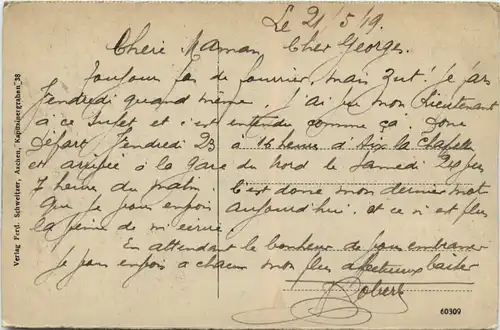 Le 21/5/19.
Cheri Maman, Cher Georges.
Toujours pas de fourrier, mais Zut! je pars
Vendredi quand même. J'ai vu mon Lieutenant
à ce sujet et c'est entendu comme ça. Donc
Départ, Vendredi 23 à 16 heures d'Aix la Chapelle
et arrivée à la gare du Nord le Samedi 24 par
7 heures du matin. C'est donc mon dernier mot
que je vous envois aujourd'hui, et ce n'est plus
la peine de m'écrire.
En attendant le bonheur de vous embrasser
je vous envois à chacun mon plus affectueux baiser
Robert
Verlag Ferd. Schweitzer, Aachen, Kapuzinergraben 38
60309